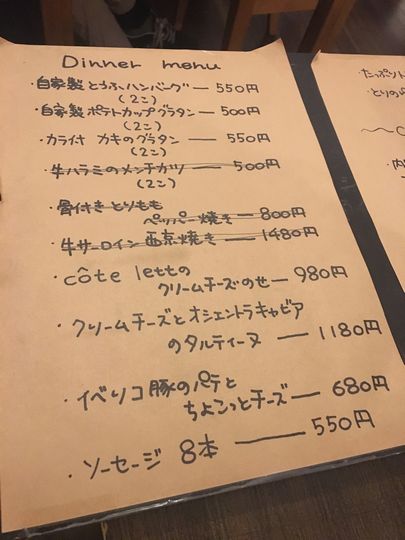 Dinner menu
・自家製 とうふハンバーグ — 550円
(2こ)
・自家製 ポテトカップグラタン — 500円
(2こ)
・カライ付 カキのグラタン — 550円
(2こ)
・牛ハラミのメンチカツ — 500円
(2こ)
・骨付き とりもも
ペッパー焼き — 800円
・牛サーロイン 西京焼き — 1480円
・côte lettの
クリームチーズのせ — 980円
・クリームチーズとオシェントラキャビア
のタルティーヌ — 1180円
・イベリコ豚のパテと
ちょこっとチーズ — 680円
・ソーセージ 8本 — 550円
たっぷり
・とりの